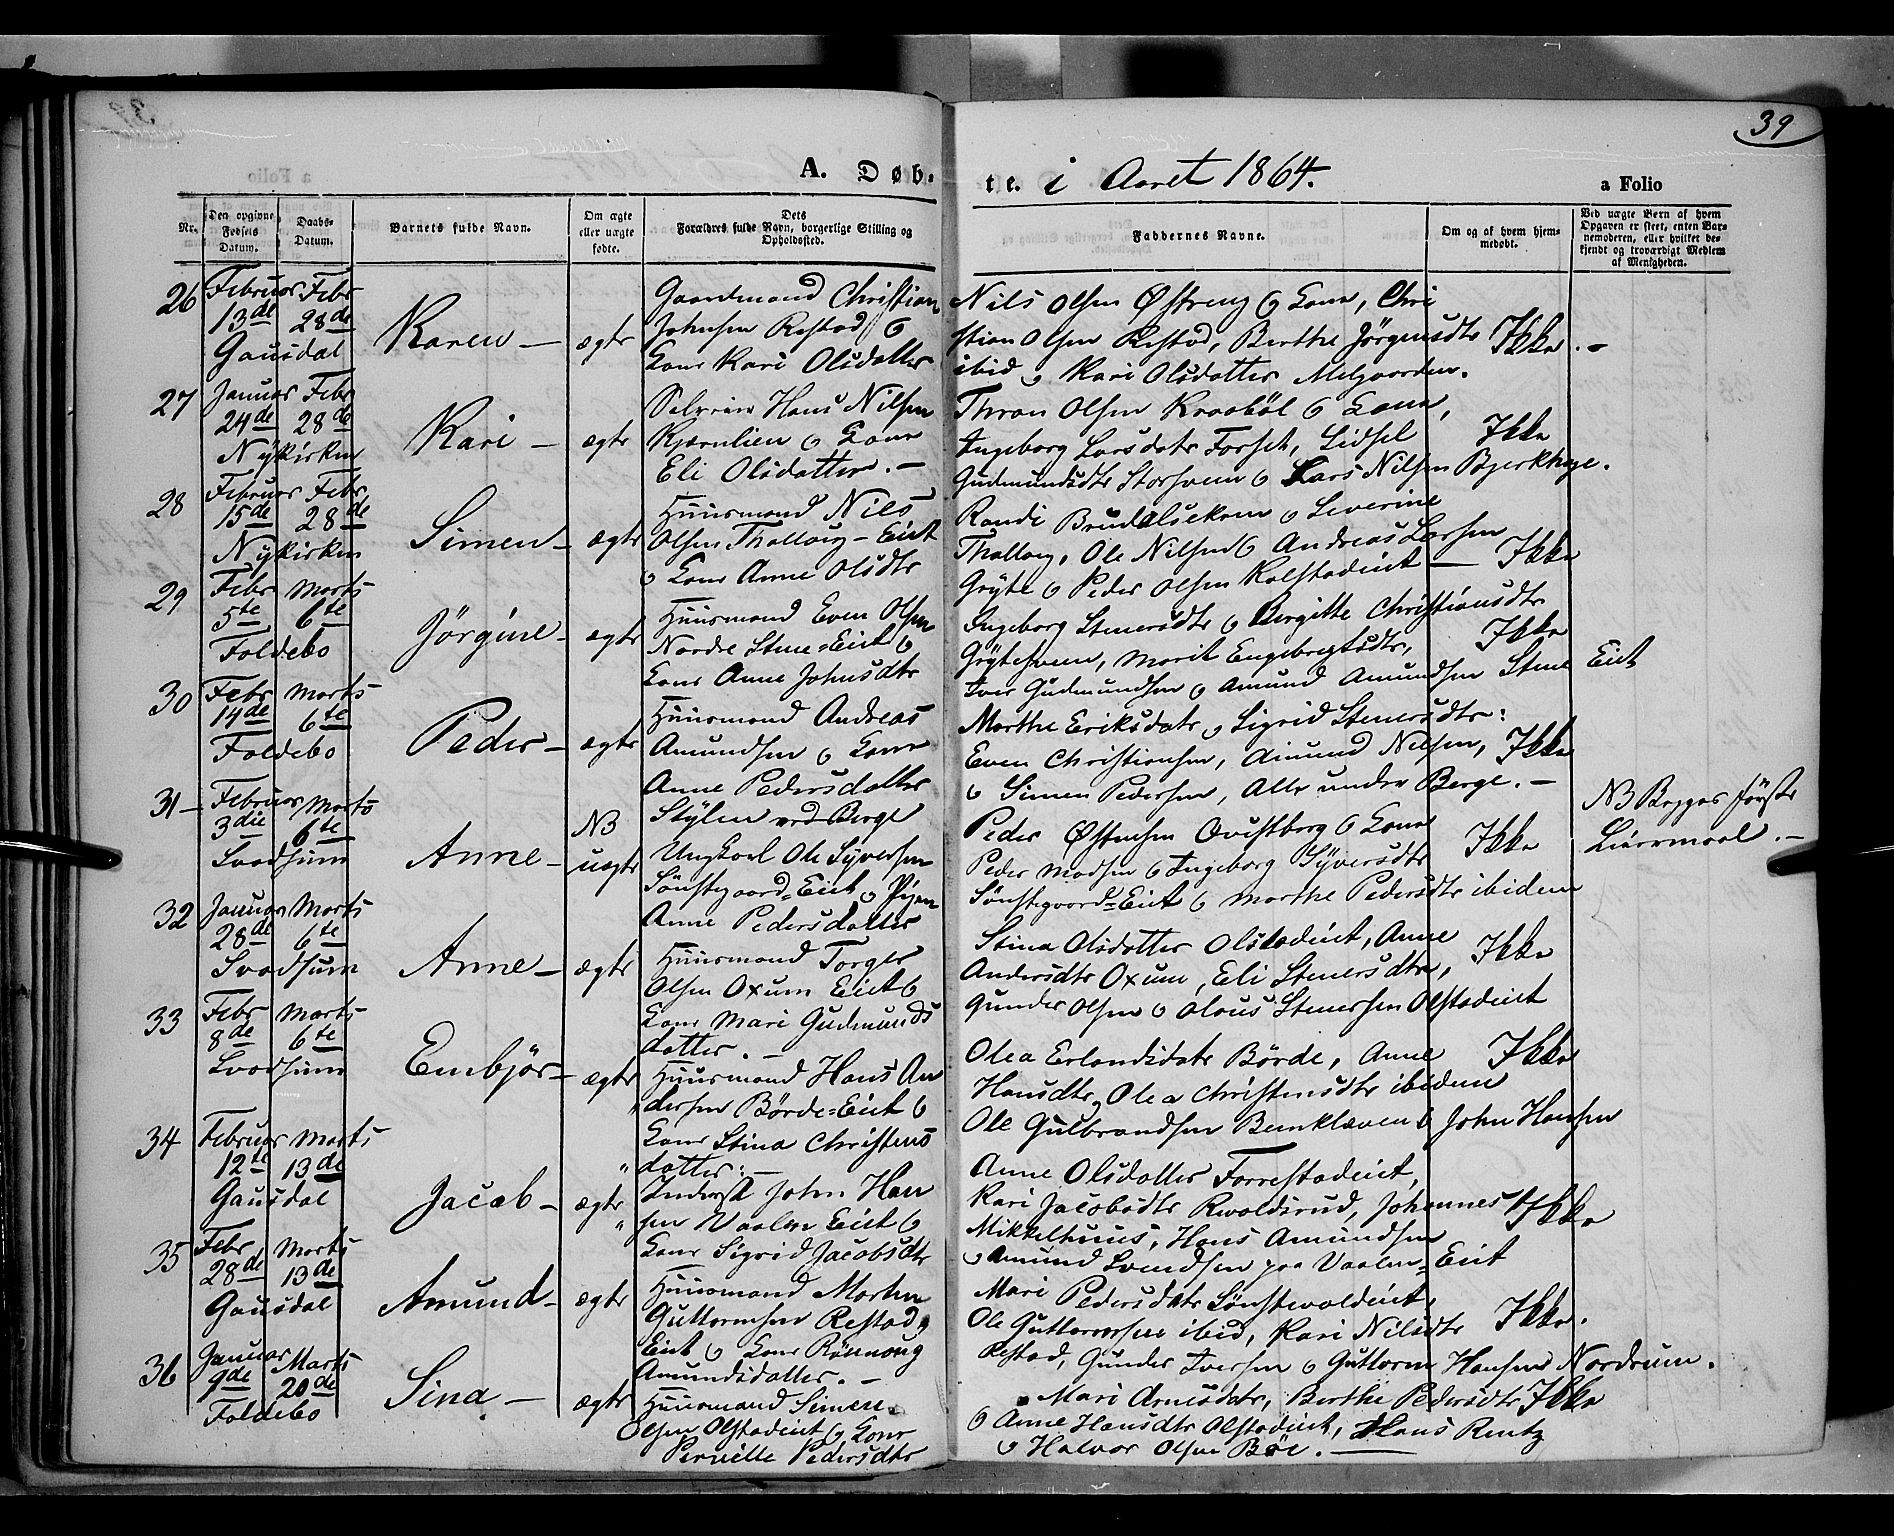 39
A. Døb-
te. i Aaret 1864.
a Folio
Nr.
Den opgivne Fødsels Datum.
Daabs-Datum.
Barnets fulde Navn.
Om ægte eller uægte fødte.
Dets Forældres fulde Navn, borgerlige Stilling og Opholdssted.
Faddernes Navne.
Om og af hvem hjemmedøbt.
Ved uægte Børn af hvem Opgaven er skeet, enten Barnemoderen, eller hvilket bekjendt og troværdigt Medlem af Menigheden.
26
Februar Febr
13de 28de
Gausdal
Karen –
ægte
Gaardmand Christian
Johnsen Restad og
Kone Kari Olsdatter
Nils Olsen Østreng og Kone, Chri
stian Olsen Restad, Berthe Jørgensdtr
ibid og Kari Olsdatter Melgaarden.
Ikke. –
27
Januar Febr
24de 28de
Nykirken
Kari –
ægte
Selveier Hans Nilsen
Kjærnlien og Kone
Eli Olsdatter. –
Thron Olsen Kraabøl og Kone,
Ingeborg Larsdatr Forset, Sidsel
Gudmundsdtr Storsveen og Lars Nilsen Bjerkhage.
Ikke
28
Februar Febr
15de 28de
Nykirken
Simen –
ægte
Huusmand Nils
Olsen Thallaug-Eiet
og Kone Anne Olsdtr
Randi Brudalsekren og Severine
Thallaug, Ole Nilsen og Andreas Larsen
Gryte og Peder Olsen Kalstadeiet –
Ikke
29
Febr Marts
5te 6te
Foldebo
Jørgine –
ægte
Huusmand Even Olsen
Nordre Stene-Eiet og
Kone Anne Johnsdtr
Ingeborg Stenersdtr og Birgitte Christiansdtr
Grytesveen, Marit Engebregtsdtr,
Iver Gudmundsen og Amund Amundsen Stene Eiet
Ikke
30
Febr Marts
14de 6te
Foldebo
Peder –
ægte
Huusmand Andreas
Amundsen og Kone
Anne Pedersdatter
Stylen ved Berge
Marthe Eriksdatr og Sigrid Stenersdtr:
Even Christiansen, Amund Nilsen,
og Simen Pedersen, Alle under Berge. –
Ikke
31 –
Februar Marts
3die 6te
Svadsum
Anne –
NB
uægte
Ungkarl Ole Syversen
Sønstegaard-Eiet og Pigen
Anne Pedersdatter
Peder Østensen Qvistberg og Kone
Peder Madsen og Ingeborg Syversdtr
Sønstegaard-Eiet og Marthe Pedersdtr ibidem
Ikke
NB Begges første
Leiermaal. –
32
Januar Marts
28de 6te
Svadsum
Anne –
ægte
Huusmand Torger
Olsen Oxum Eiet og
Kone Mari Gudmunds
datter. –
Stina Olsdatter Olstadeiet, Anne
Andersdtr Oxum, Eli Stenersdtr,
Gunder Olsen og Olaus Stenersen Olstadeiet
Ikke
33
Febr Marts
8de 6te
Svadsum
Embjør –
ægte
Huusmand Hans An
dersen Børde-Eiet og
Kone Stina Christens
datter. –
Olea Erlandsdatr Børde, Anne
Hansdtr, Olea Christensdtr ibidem
Ole Gulbrandsen Benklæven og John Hansen
Ikke
34
Februar Marts
12te 13de
Gausdal
Jacob –
ægte
Inderst John Han
sen Vaalen Eiet og
Kone Sigrid Jacobsdtr
Anne Olsdatter Forrestadeiet,
Kari Jacobsdtr Roaldsrud, Johannes
Mikkelhuus, Hans Amundsen
og Amund Svendsen paa Vaalen-Eiet
Ikke
35
Febr Marts
28de 13de
Gausdal
Amund –
ægte
Huusmand Morten
Guttormsen Restad
Eiet og Kone Rønnoug
Amundsdatter. –
Mari Pedersdatr Sønstevoldeiet,
Ole Guttormsen ibid, Kari Nilsdtr
Restad, Gunder Iversen og Guttorm Hansen Nordrum.
Ikke.
36
Januar Marts
9de 20de
Foldebo
Sina –
ægte
Huusmand Simen
Olsen Olstadeiet og Kone
Pernille Pedersdtr
Mari Arnesdatr, Berthe Pedersdtr
og Anne Hansdtr Olstadeiet, Hans Rentz
og Halvor Olsen Bøe. –
Ikke